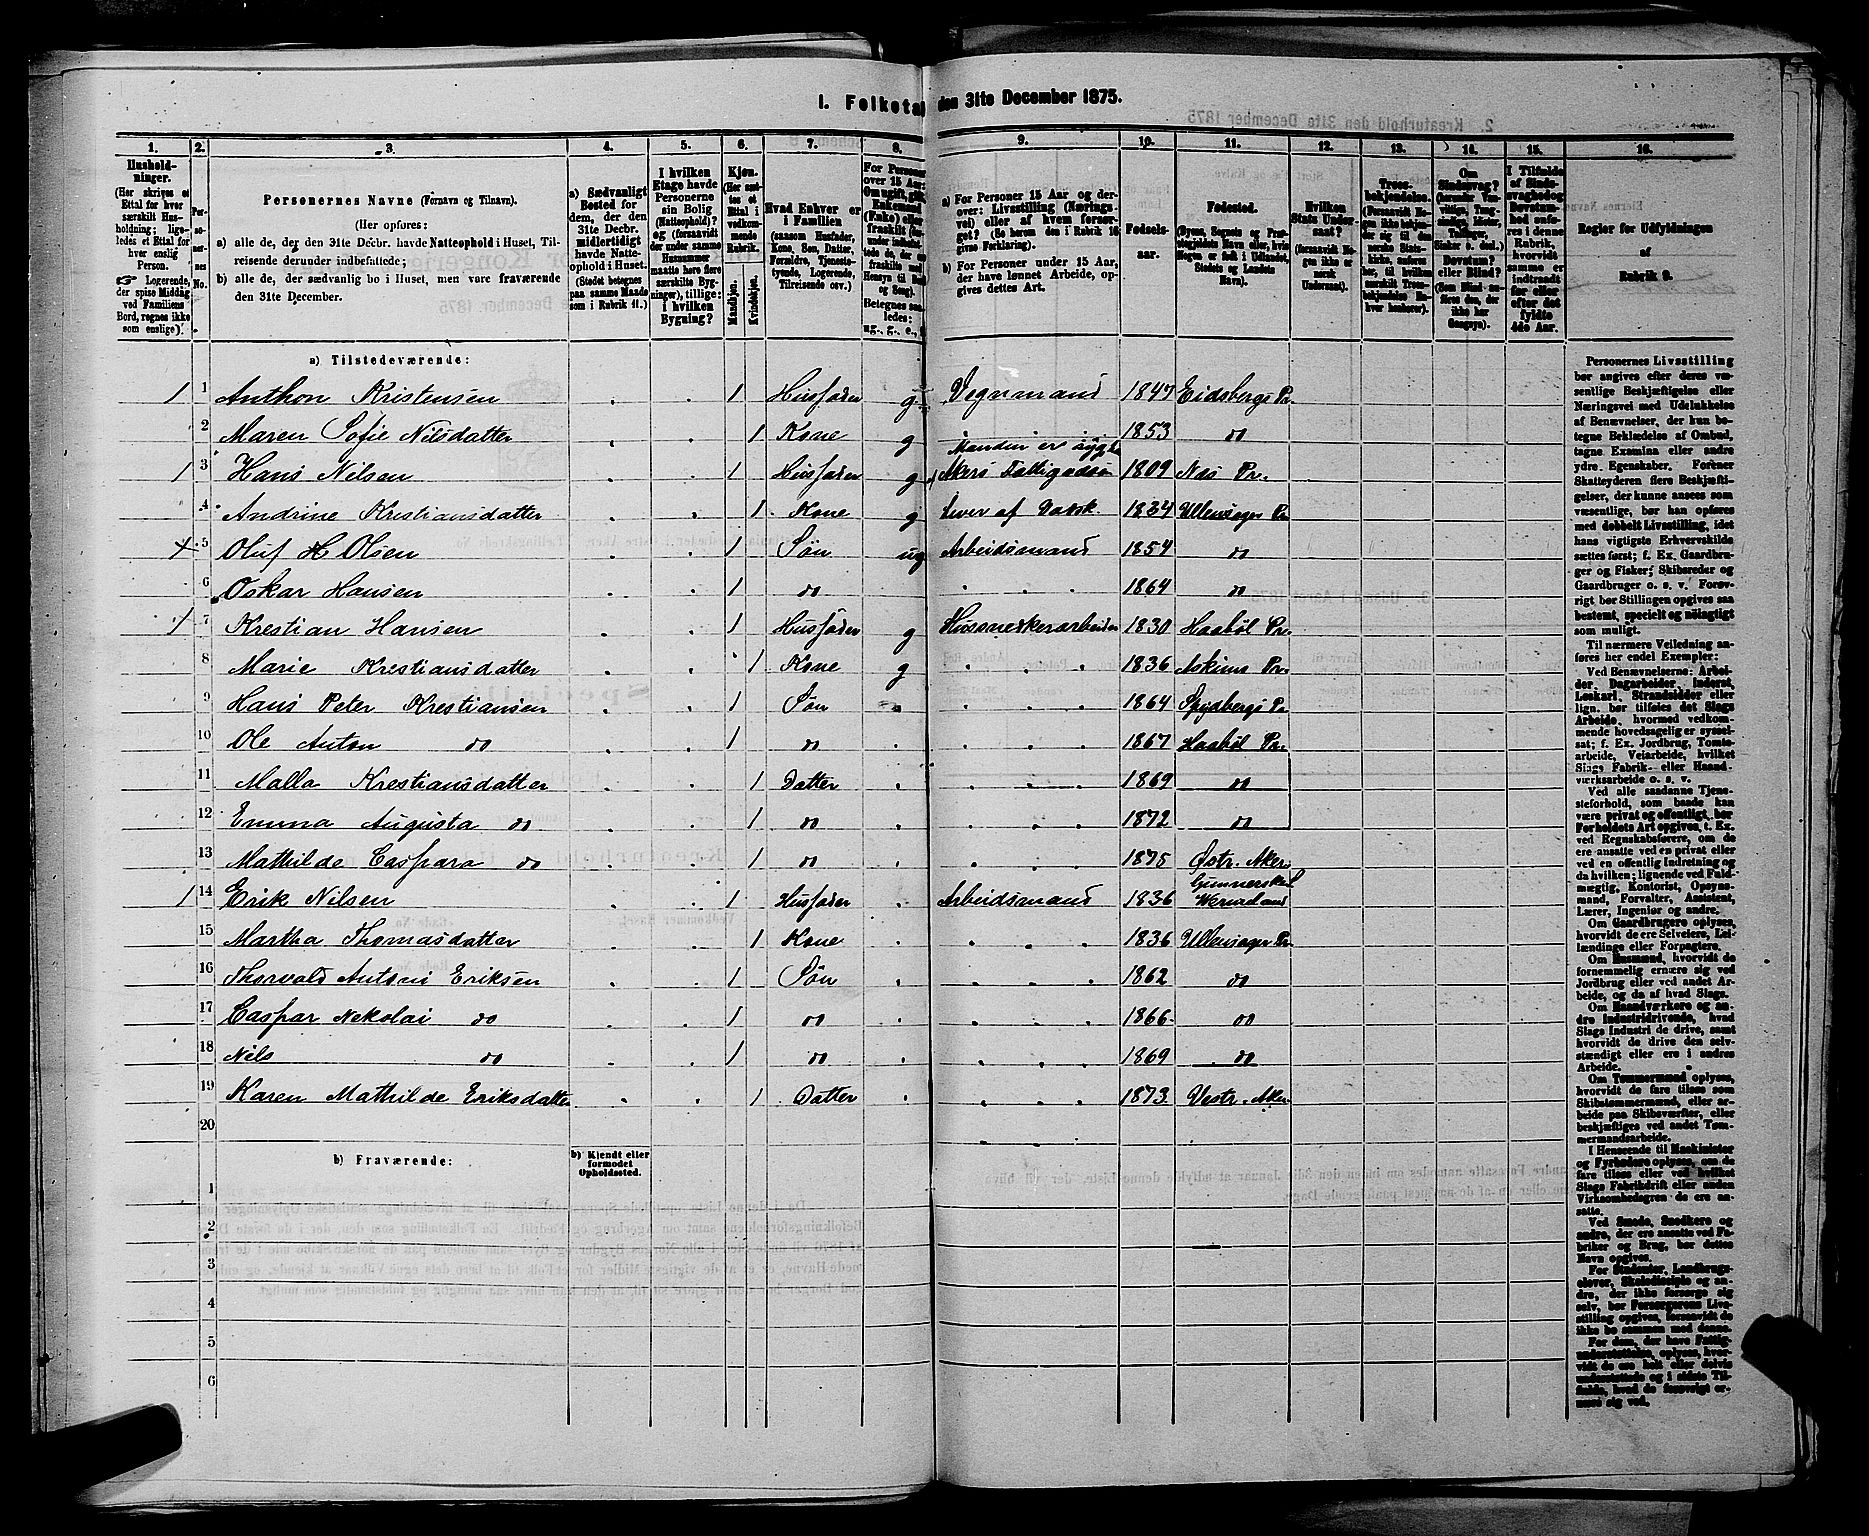 1. Folketal den 31te December 1875.
1. 2. 3. 4. 5. 6. 7. 8. 9. 10. 11. 12. 13. 14. 15. 16.
Hushold-
ninger.
(Her skrives et
Ettal for hver
særskilt Hus-
holdning; lige-
ledes et Ettal for
hver enslig
Person.
☞ Logerende,
der spise Middag
ved Familiens
Bord, regnes ikke
som enslige).
Personernes No.
Personernes Navne (Fornavn og Tilnavn).
(Her opføres:
a) alle de, der den 31te Decbr. havde Natteophold i Huset, Til-
reisende derunder indbefattede;
b) alle de, der sædvanlig bo i Huset, men vare fraværende
den 31te December.
a) Sædvanligt
Bosted for
dem, der den
31te Decbr.
midlertidigt
havde Natte-
ophold i Huset.
(Stedet betegnes
paa samme Maade
som i Rubrik 11.)
I hvilken
Etage havde
Personerne
sin Bolig
(Natteophold)?
og (forsaavidt
der under samme
Husnummer
maatte høre flere
særskilte Byg-
ninger), tillige:
i hvilken
Bygning?
Kjøn.
(Her sæt-
tes et
Ettal i
vedkom-
mende
Rubrik.
Mandkjøn.
Kvindekjøn.
Hvad Enhver er
i Familien
(saasom Husfader,
Kone, Søn, Datter,
Forældre, Tjeneste-
tyende, Logerende,
Tilreisende osv.)
For Personer
over 15 Aar:
Om ugift, gift,
Enkemand
(Enke) eller
fraskilt
Betegnes saa-
ledes:
ug., g., e.,
a) For Personer 15 Aar og der-
over: Livsstilling (Nærings-
vei) eller af hvem forsør-
get? (Se herom den i Rubrik 16
givne Forklaring).
b) For Personer under 15 Aar,
der have lønnet Arbeide, op-
gives dettes Art.
Fødsels-
aar.
Fødested.
(Byens, Sognets og Præ-
stegjeldets Navn eller, hvis
Nogen er født i Udlandet,
Stedets og Landets
Navn).
Hvilken
Stats Under-
saat?
(forsaavidt No-
gen ikke er
norsk
Undersaat).
Troes-
bekjendelse.
(Forsaavidt No-
gen ikke bekjen-
der sig til den
norske Stats-
kirke, anføres
her, til hvilken
særskilte Troes-
bekjendelse En-
hver henhører).
Om
Sindssvag?
Døvstum?
eller Blind?
I Tilfælde
af Sinds-
svaghed og
Døvstum-
hed anfø-
res i denne
Rubrik,
hvorvidt
samme er
indtraadt
før eller
efter det
fyldte
4de Aar.
Regler for Udfyldningen
af
Rubrik 9.
a) Tilstedeværende:
1 1 Anthon Kristensen 1 Husfader g Vegnmand 1847 Eidsbergs Pr.
2 Maren Sofie Nilsdatter 1 Kone g 1853 do
Manden er sygelig
1 3 Hans Nilsen 1 Husfader g Akers Fattigvæsen 1809 Nas Pr.
4 Andrine Kristiansdatter 1 Kone g Lever af Do 1834 Ullensager Pr
5 Oluf H Olsen 1 Søn ug Arbeidsmand 1854 do
6 Oskar Hansen 1 do 1864 do
1 7 Krestian Hansen 1 Husfader g 1830 Haabøl Pr.
8 Marie Krestiansdatter 1 Kone g 1836 Askims Pr.
9 Hans Peter Krestiansen 1 Søn 1864 Spydbergs Pr
10 Ole Anton do 1 do 1867 Haabøl Pr.
11 Malla Krestiansdatter 1 Datter 1869 do
12 Emma Augusta do 1 do 1872 do
13 Mathilde Caspara do 1 do 1875 Østr. Aker
1 14 Erik Nilsen 1 Husfader Arbeidsmand 1836 Gunnerskol Wermland
15 Martha Thomasdatter 1 Kone 1836 Ullensager Pr.
16 Thorvald Antoni Eriksen 1 Søn 1862 do
17 Caspar Nekolai do 1 do 1866 do
18 Nils do 1 do 1869 do
19 Karen Mathilde Eriksdatter 1 Datter 1873 Vestr. Aker
20
b) Fraværende:
b) Kjendt eller
formodet
Opholdssted.
1
2
3
4
5
6
Personernes Livsstilling
bør angives efter deres væ-
sentlige Beskjæftigelse eller
Næringsvei med Udelukkelse
af Benævnelser, der kun be-
tegne Beklædelse af Ombud,
tagne Examina eller andre
ydre Egenskaber. Forener
Skatteyderen flere Beskjæfti-
gelser, der kunne ansees som
væsentlige, bør han opføres
med dobbelt Livsstilling, idet
hans vigtigste Erhvervskilde
sættes først; f. Ex. Gaardbru-
ger og Fisker; Skibsreder og
Gaardbruger o. s. v. Forøv-
rigt bør Stillingen opgives saa
bestemt, specielt og nøiagtigt
som muligt.
Til nærmere Veiledning an-
føres her endel Exempler:
Ved Benævnelserne: Arbei-
der, Dagarbeider, Inderst,
Løskarl, Strandsidder eller
lign. bør tilføies det Slags
Arbeide, hvormed vedkom-
mende hovedsagelig er syssel-
sat; f. Ex. Jordbrug, Tomte-
arbeide, Veiarbeide, hvilket
Slags Fabrik- eller Haand-
værksarbeide o. s. v.
Ved alle saadanne Tjene-
steforhold, som baade kan
være privat og offentligt, bør
Forholdets Art opgives, t. Ex.
ved Regnskabsførere, om de
ere ansatte ved en privat eller
ved en offentlig Indretning og
da hvilken; lignende ved Fuld-
mægtig, Kontorist, Opsyns-
mand, Forvalter, Assistent,
Lærer, Ingeniør og andre.
Om Gaardbrugere oplyses,
hvorvidt de ere Selveiere, Lei-
lændinge eller Forpagtere.
Om Husmænd, hvorvidt de
fornemmelig ernære sig ved
Jordbrug eller ved andet Ar-
beide, og da af hvad Slags.
Om Haandværkere og an-
dre Industridrivende, hvad
Slags Industri de drive, samt
hvorvidt de drive den selv-
stændigt eller ere i andres
Arbeide.
Om Tømmermænd oplyses,
hvorvidt de fare tilsøs som
Skibstømmermænd, eller ar-
beide paa Skibsværfter, eller
beskjæftiges ved andet Tøm-
mermandsarbeide.
I Henseende til Maskinister
og Fyrbødere oplyses, om de
fare tilsøs eller ved hvilket
Slags Fabrikdrift eller anden
Virksomhedsgren de ere an-
satte.
Ved Smede, Snedkere og
andre, der ere ansatte ved Fa-
briker og Brug, bør dettes
Navn opgives.
For Studenter, Landbrugs-
elever, Skoledisciple og an-
dre, der ikke forsørge sig
selv, bør Forsørgerens Livs-
stilling opgives, forsaavidt de
ikke bo sammen med denne.
For dem, der have Fattig-
understøttelse, oplyses, hvor-
vidt de ere helt eller delvis
understøttede og i sidste Til-
fælde, hvad de forøvrigt er-
nære sig ved.